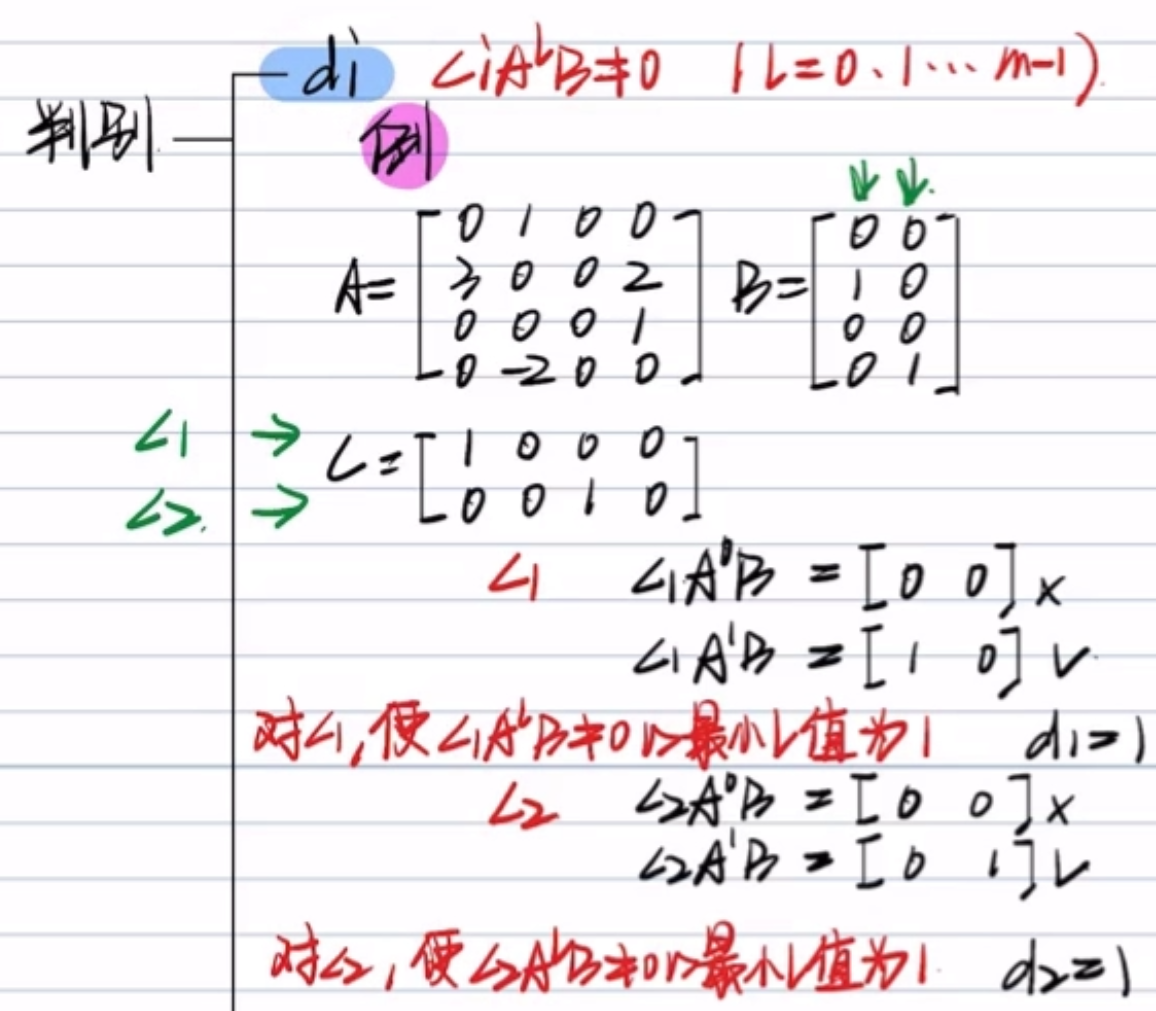 di CiA^LB≠0 (L=0.1… m-1)
判别
例
↓ ↓
A=[0 1 0 0; 3 0 0 2; 0 0 0 1; 0 -2 0 0] B=[0 0; 1 0; 0 0; 0 1]
C1 →
C2. → C=[1 0 0 0; 0 0 1 0]
C1 C1A^0B = [0 0] ×
C1A^1B = [1 0] ✓
对C1,使C1A^LB≠0的最小L值为1 d1=1
C2 C2A^0B = [0 0] ×
C2A^1B = [0 1] ✓
对C2,使C2A^LB≠0的最小L值为1 d2=1